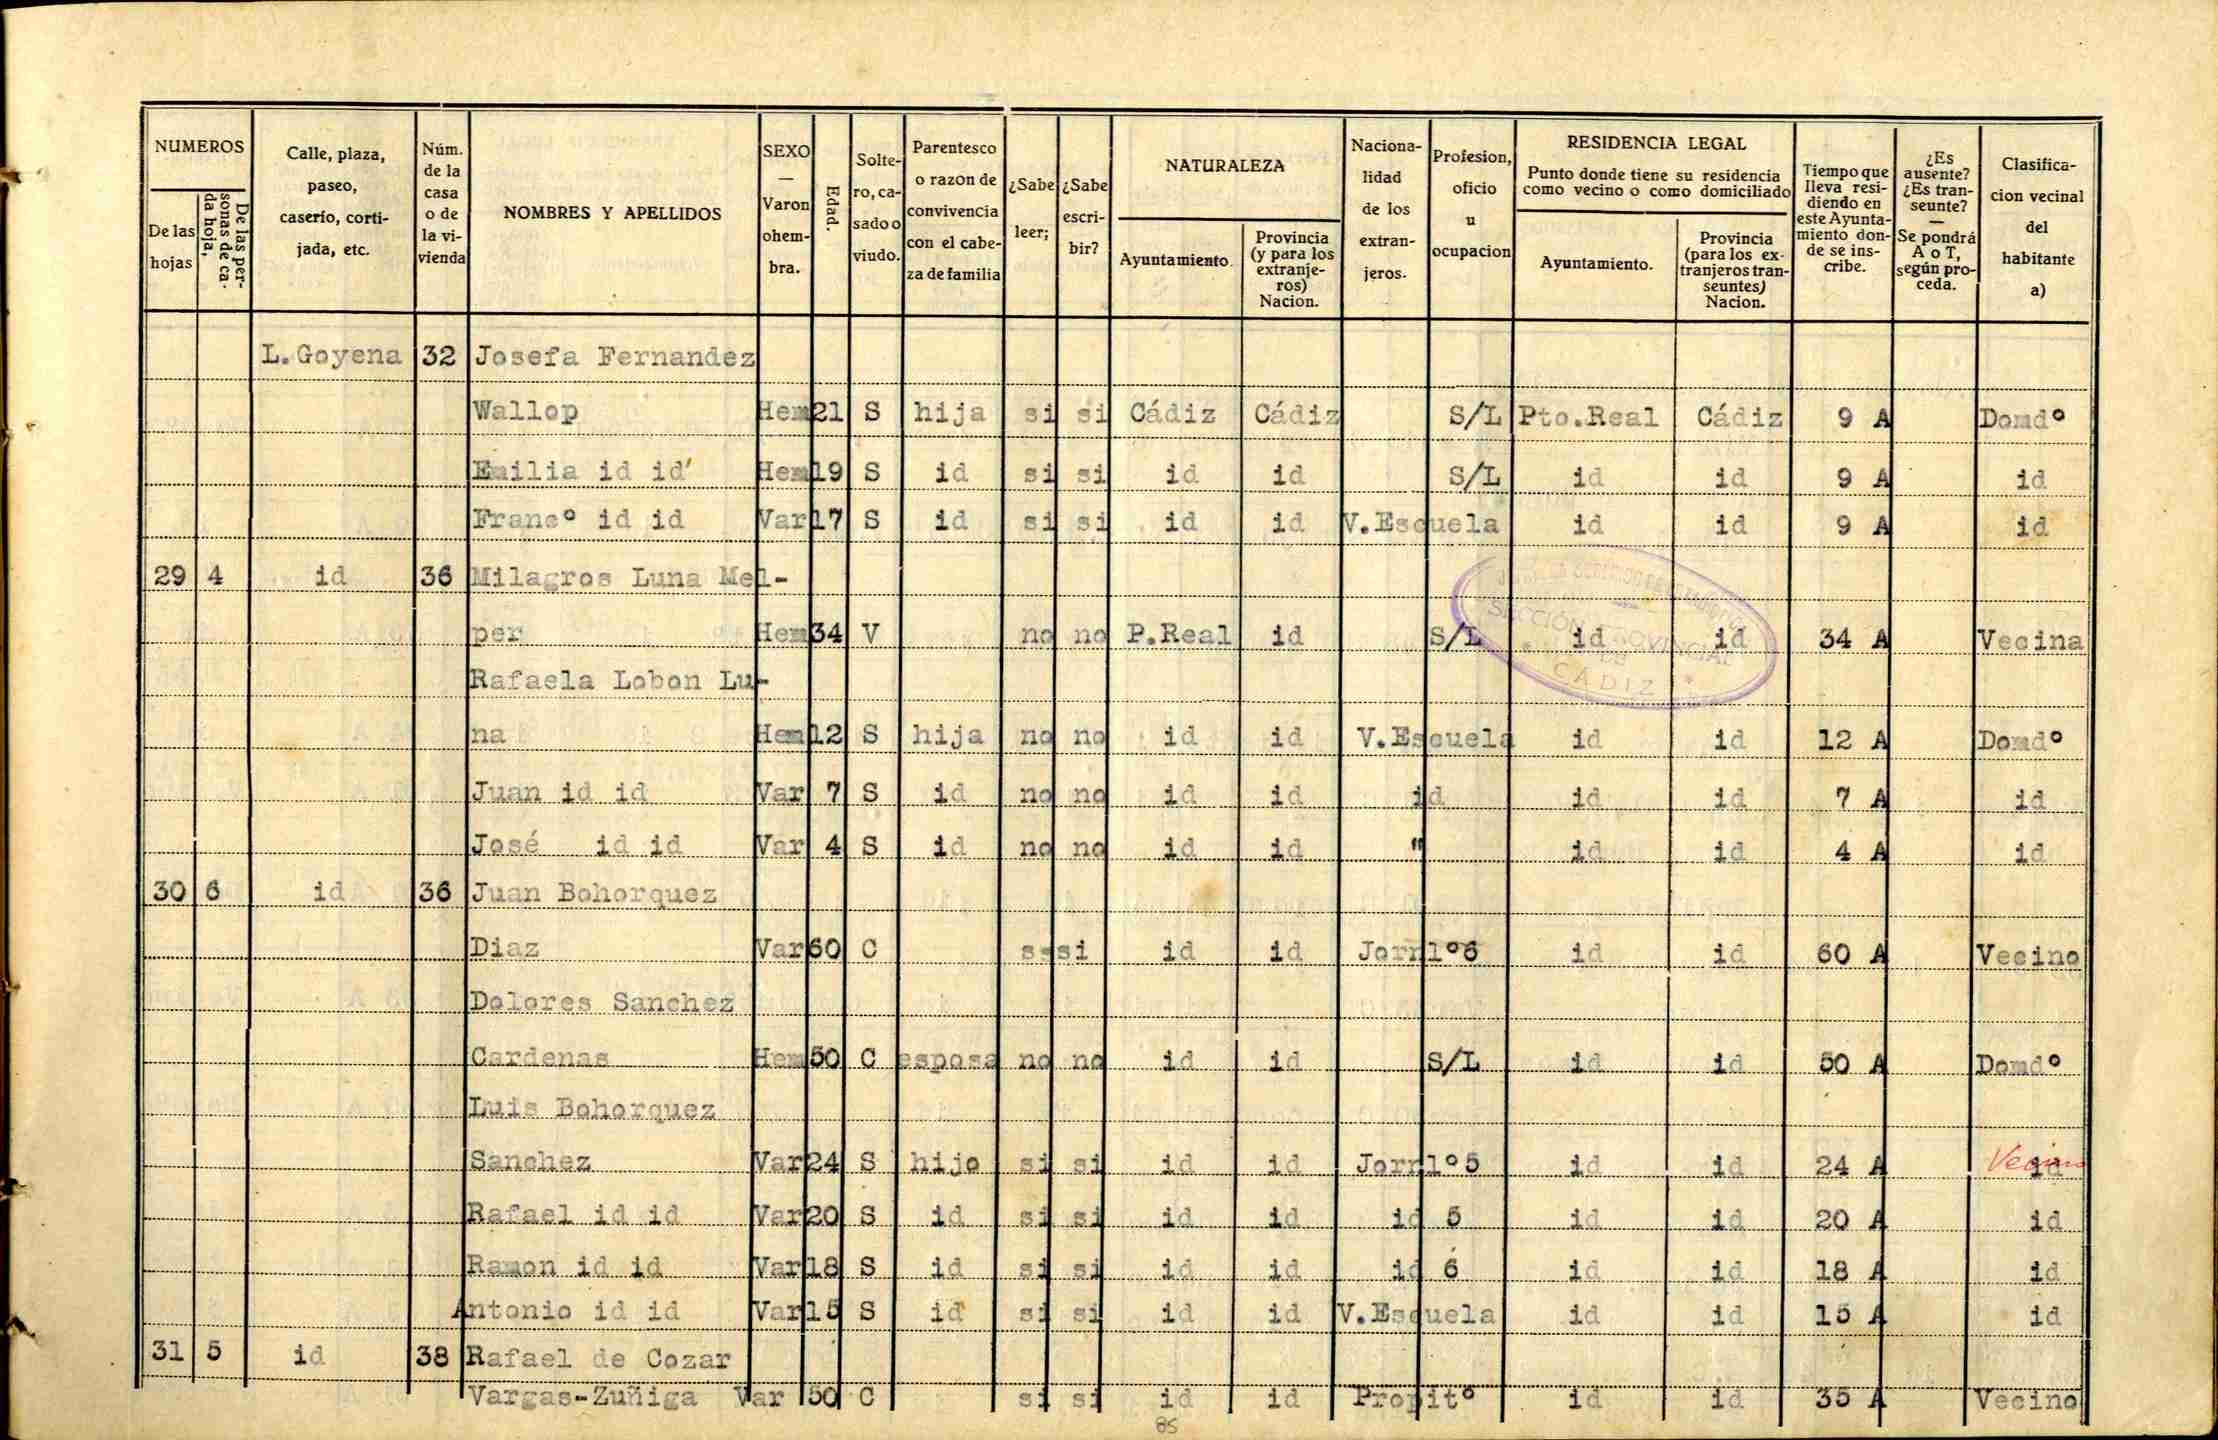 NUMEROS
De las hojas
De las personas de cada hoja,
Calle, plaza, paseo, caserío, cortijada, etc.
Núm. de la casa o de la vivienda
NOMBRES Y APELLIDOS
SEXO — Varon ohembra.
Edad.
Soltero, casado o viudo.
Parentesco o razon de convivencia con el cabeza de familia
¿Sabe leer;
¿Sabe escribir?
NATURALEZA
Ayuntamiento.
Provincia (y para los extranjeros) Nacion.
Nacionalidad de los extranjeros.
Profesion, oficio u ocupacion
RESIDENCIA LEGAL
Punto donde tiene su residencia como vecino o como domiciliado
Ayuntamiento.
Provincia (para los extranjeros transeuntes) Nacion.
Tiempo que lleva residiendo en este Ayuntamiento donde se inscribe.
¿Es ausente? ¿Es transeunte? — Se pondrá A o T, según proceda.
Clasificacion vecinal del habitante a)
L.Goyena 32 Josefa Fernandez
Wallop Hem 21 S hija si si Cádiz Cádiz S/L Pto.Real Cádiz 9 A Domdº
Emilia id id Hem 19 S id si si id id S/L id id 9 A id
Francº id id Var 17 S id si si id id V.Escuela id id 9 A id
29 4 id 36 Milagros Luna Mel-
per Hem 34 V no no P.Real id S/L id id 34 A Vecina
SECCIÓN PROVINCIAL
DE
CADIZ
Rafaela Lobon Lu-
na Hem 12 S hija no no id id V.Escuela id id 12 A Domdº
Juan id id Var 7 S id no no id id id id id 7 A id
José id id Var 4 S id no no id id " id id 4 A id
30 6 id 36 Juan Bohorquez
Diaz Var 60 C s-si id id Jornlº6 id id 60 A Vecino
Dolores Sanchez
Cardenas Hem 50 C esposa no no id id S/L id id 50 A Domdº
Luis Bohorquez
Sanchez Var 24 S hijo si si id id Jornlº5 id id 24 A id Vecino
Rafael id id Var 20 S id si si id id id 5 id id 20 A id
Ramon id id Var 18 S id si si id id id 6 id id 18 A id
Antonio id id Var 15 S id si si id id V.Escuela id id 15 A id
31 5 id 38 Rafael de Cozar
Vargas-Zuñiga Var 50 C si si id id Propitº id id 35 A Vecino